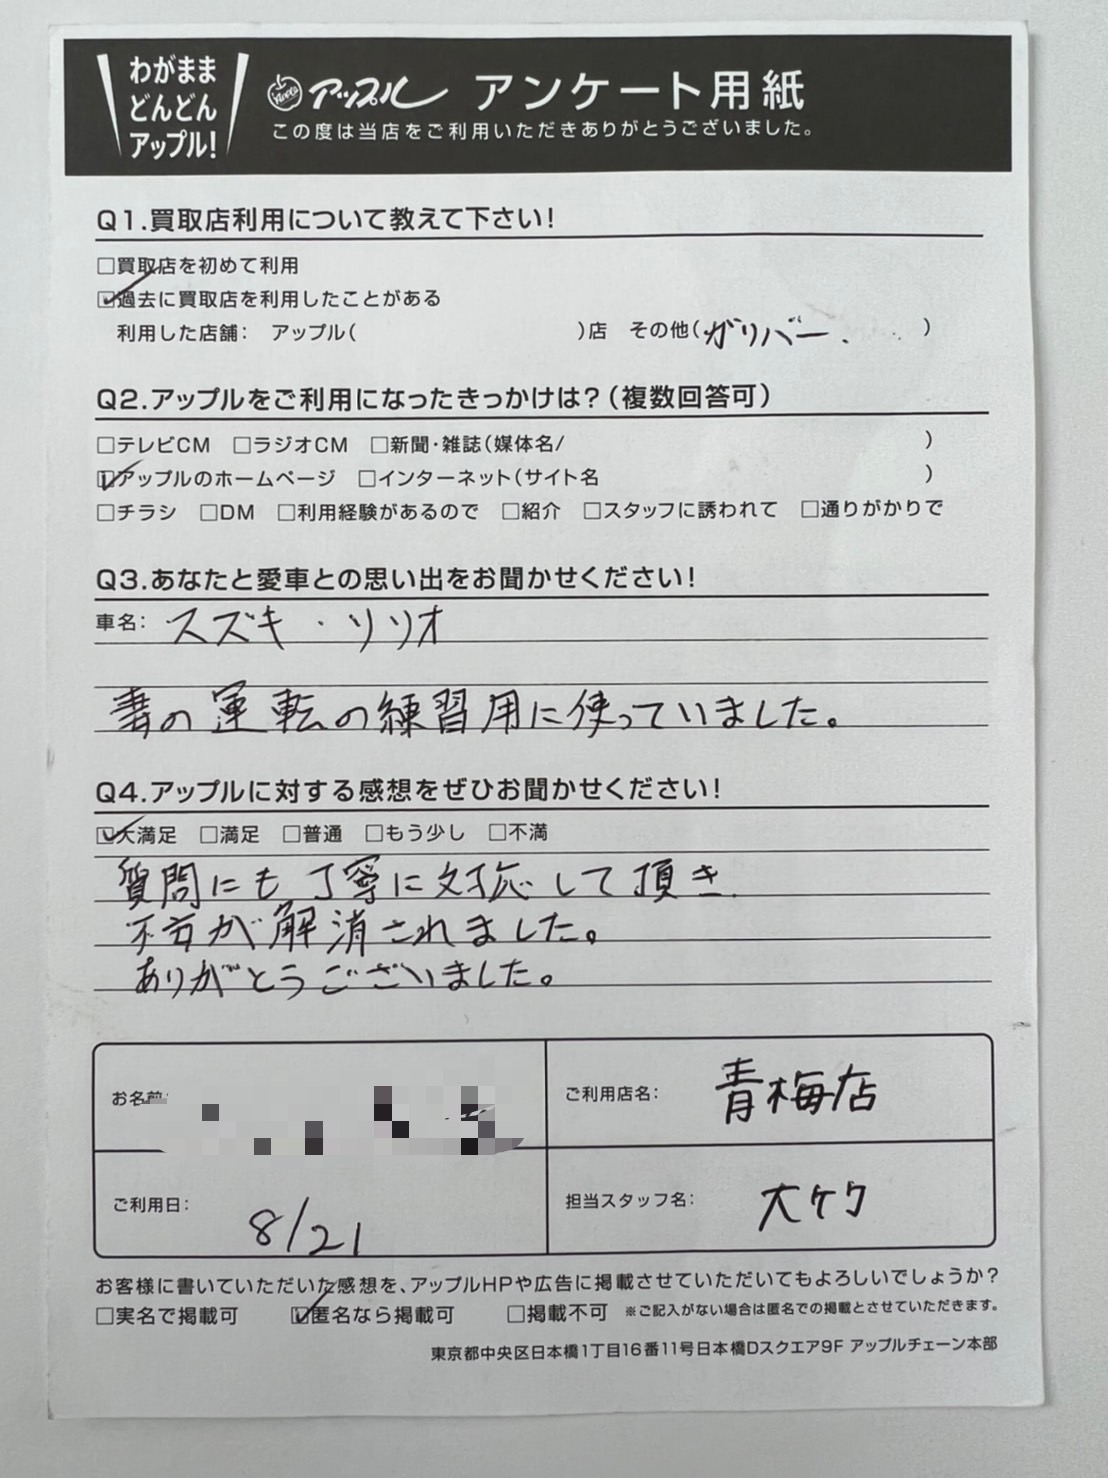 わがまま
どんどん
アップル!
アップル アンケート用紙
この度は当店をご利用いただきありがとうございました。
Q1.買取店利用について教えて下さい!
□買取店を初めて利用
☑過去に買取店を利用したことがある
利用した店舗: アップル( )店 その他(ガリバー. )
Q2.アップルをご利用になったきっかけは?(複数回答可)
□テレビCM □ラジオCM □新聞・雑誌(媒体名/ )
☑アップルのホームページ □インターネット(サイト名 )
□チラシ □DM □利用経験があるので □紹介 □スタッフに誘われて □通りがかりで
Q3.あなたと愛車との思い出をお聞かせください!
車名: スズキ・ソリオ
妻の運転の練習用に使っていました。
Q4.アップルに対する感想をぜひお聞かせください!
☑大満足 □満足 □普通 □もう少し □不満
質問にも丁寧に対応して頂き
不安が解消されました。
ありがとうございました。
お名前:
ご利用店名: 青梅店
ご利用日: 8/21
担当スタッフ名: 大ケク
お客様に書いていただいた感想を、アップルHPや広告に掲載させていただいてもよろしいでしょうか?
□実名で掲載可 ☑匿名なら掲載可 □掲載不可 ※ご記入がない場合は匿名での掲載とさせていただきます。
東京都中央区日本橋1丁目16番11号日本橋Dスクエア9F アップルチェーン本部